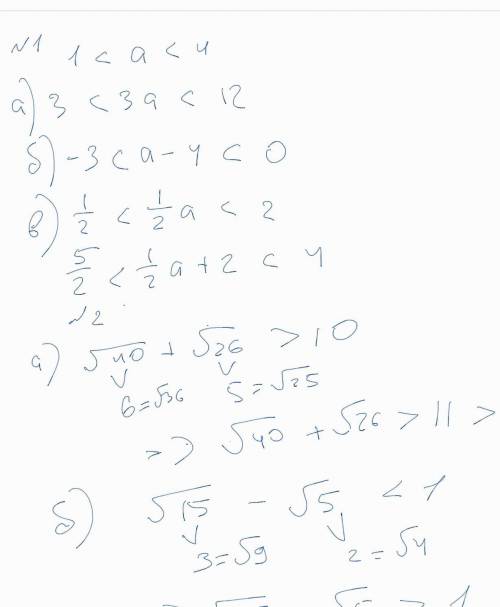 №1 1 < a < 4
а) 3 < 3a < 12
б) -3 < a - 4 < 0
в) 1/2 < 1/2 a < 2
5/2 < 1/2 a + 2 < 4
№2
а) √40 + √26 > 10
6=√36 5=√25
=> √40 + √26 > 11 >
б) √15 - √5 < 1
3=√9 2=√4